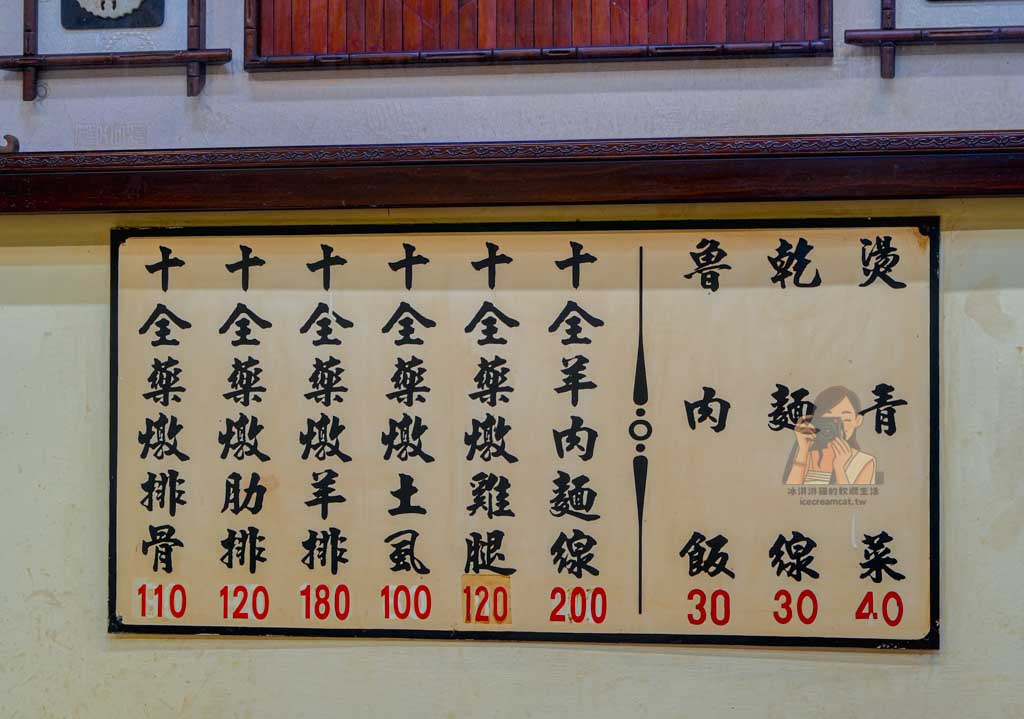 燙青菜 40
乾麵線 30
魯肉飯 30
十全羊肉麵線 200
十全藥燉雞腿 120
十全藥燉土虱 100
十全藥燉羊排 180
十全藥燉肋排 120
十全藥燉排骨 110
冰淇淋貓的軟嫩生活
icecreamcat.tw